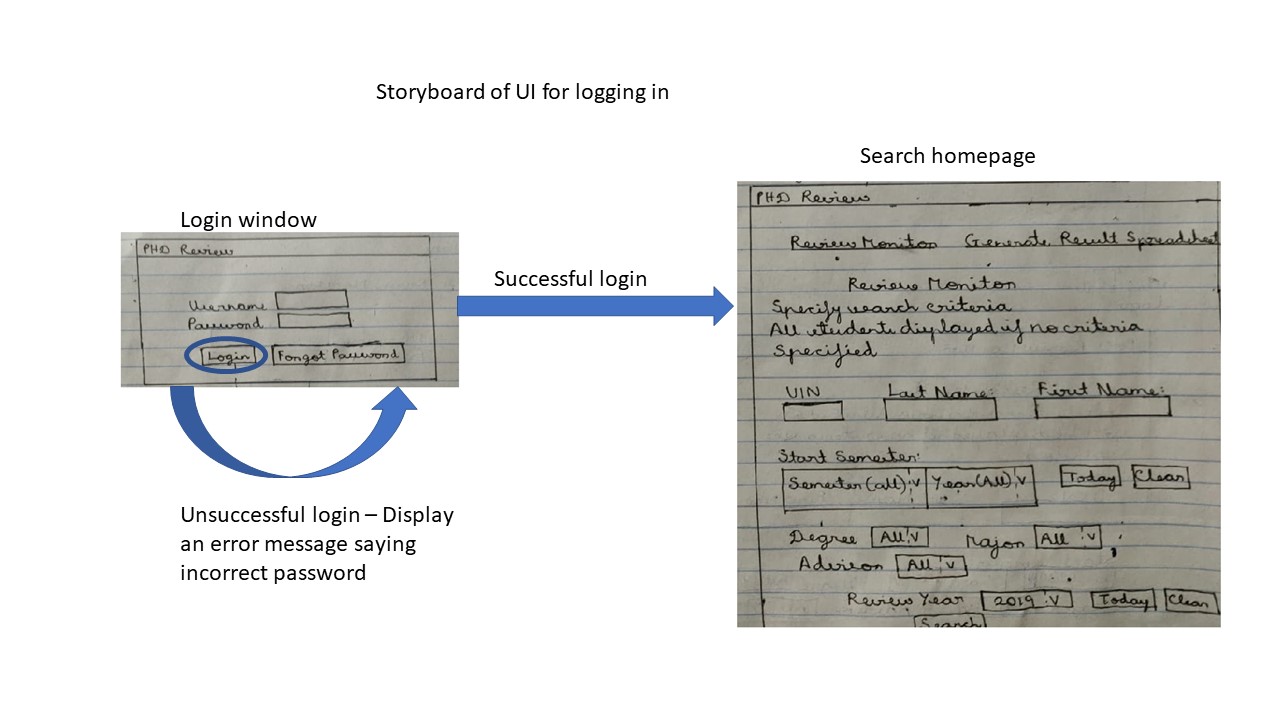 Storyboard of UI for logging in
Login window
PHD Review
Username
Password
Login
Forgot Password
Successful login
Unsuccessful login – Display
an error message saying
incorrect password
Search homepage
PHD Review
Review Monitor Generate Result Spreadsheet
Review Monitor
Specify search criteria
All students displayed if no criteria
Specified
UIN Last Name: First Name:
Start Semester:
Semester (all) V Year (All) V Today Clear
Degree All V Major All V
Advisor All V
Review Year 2019 V Today Clear
Search